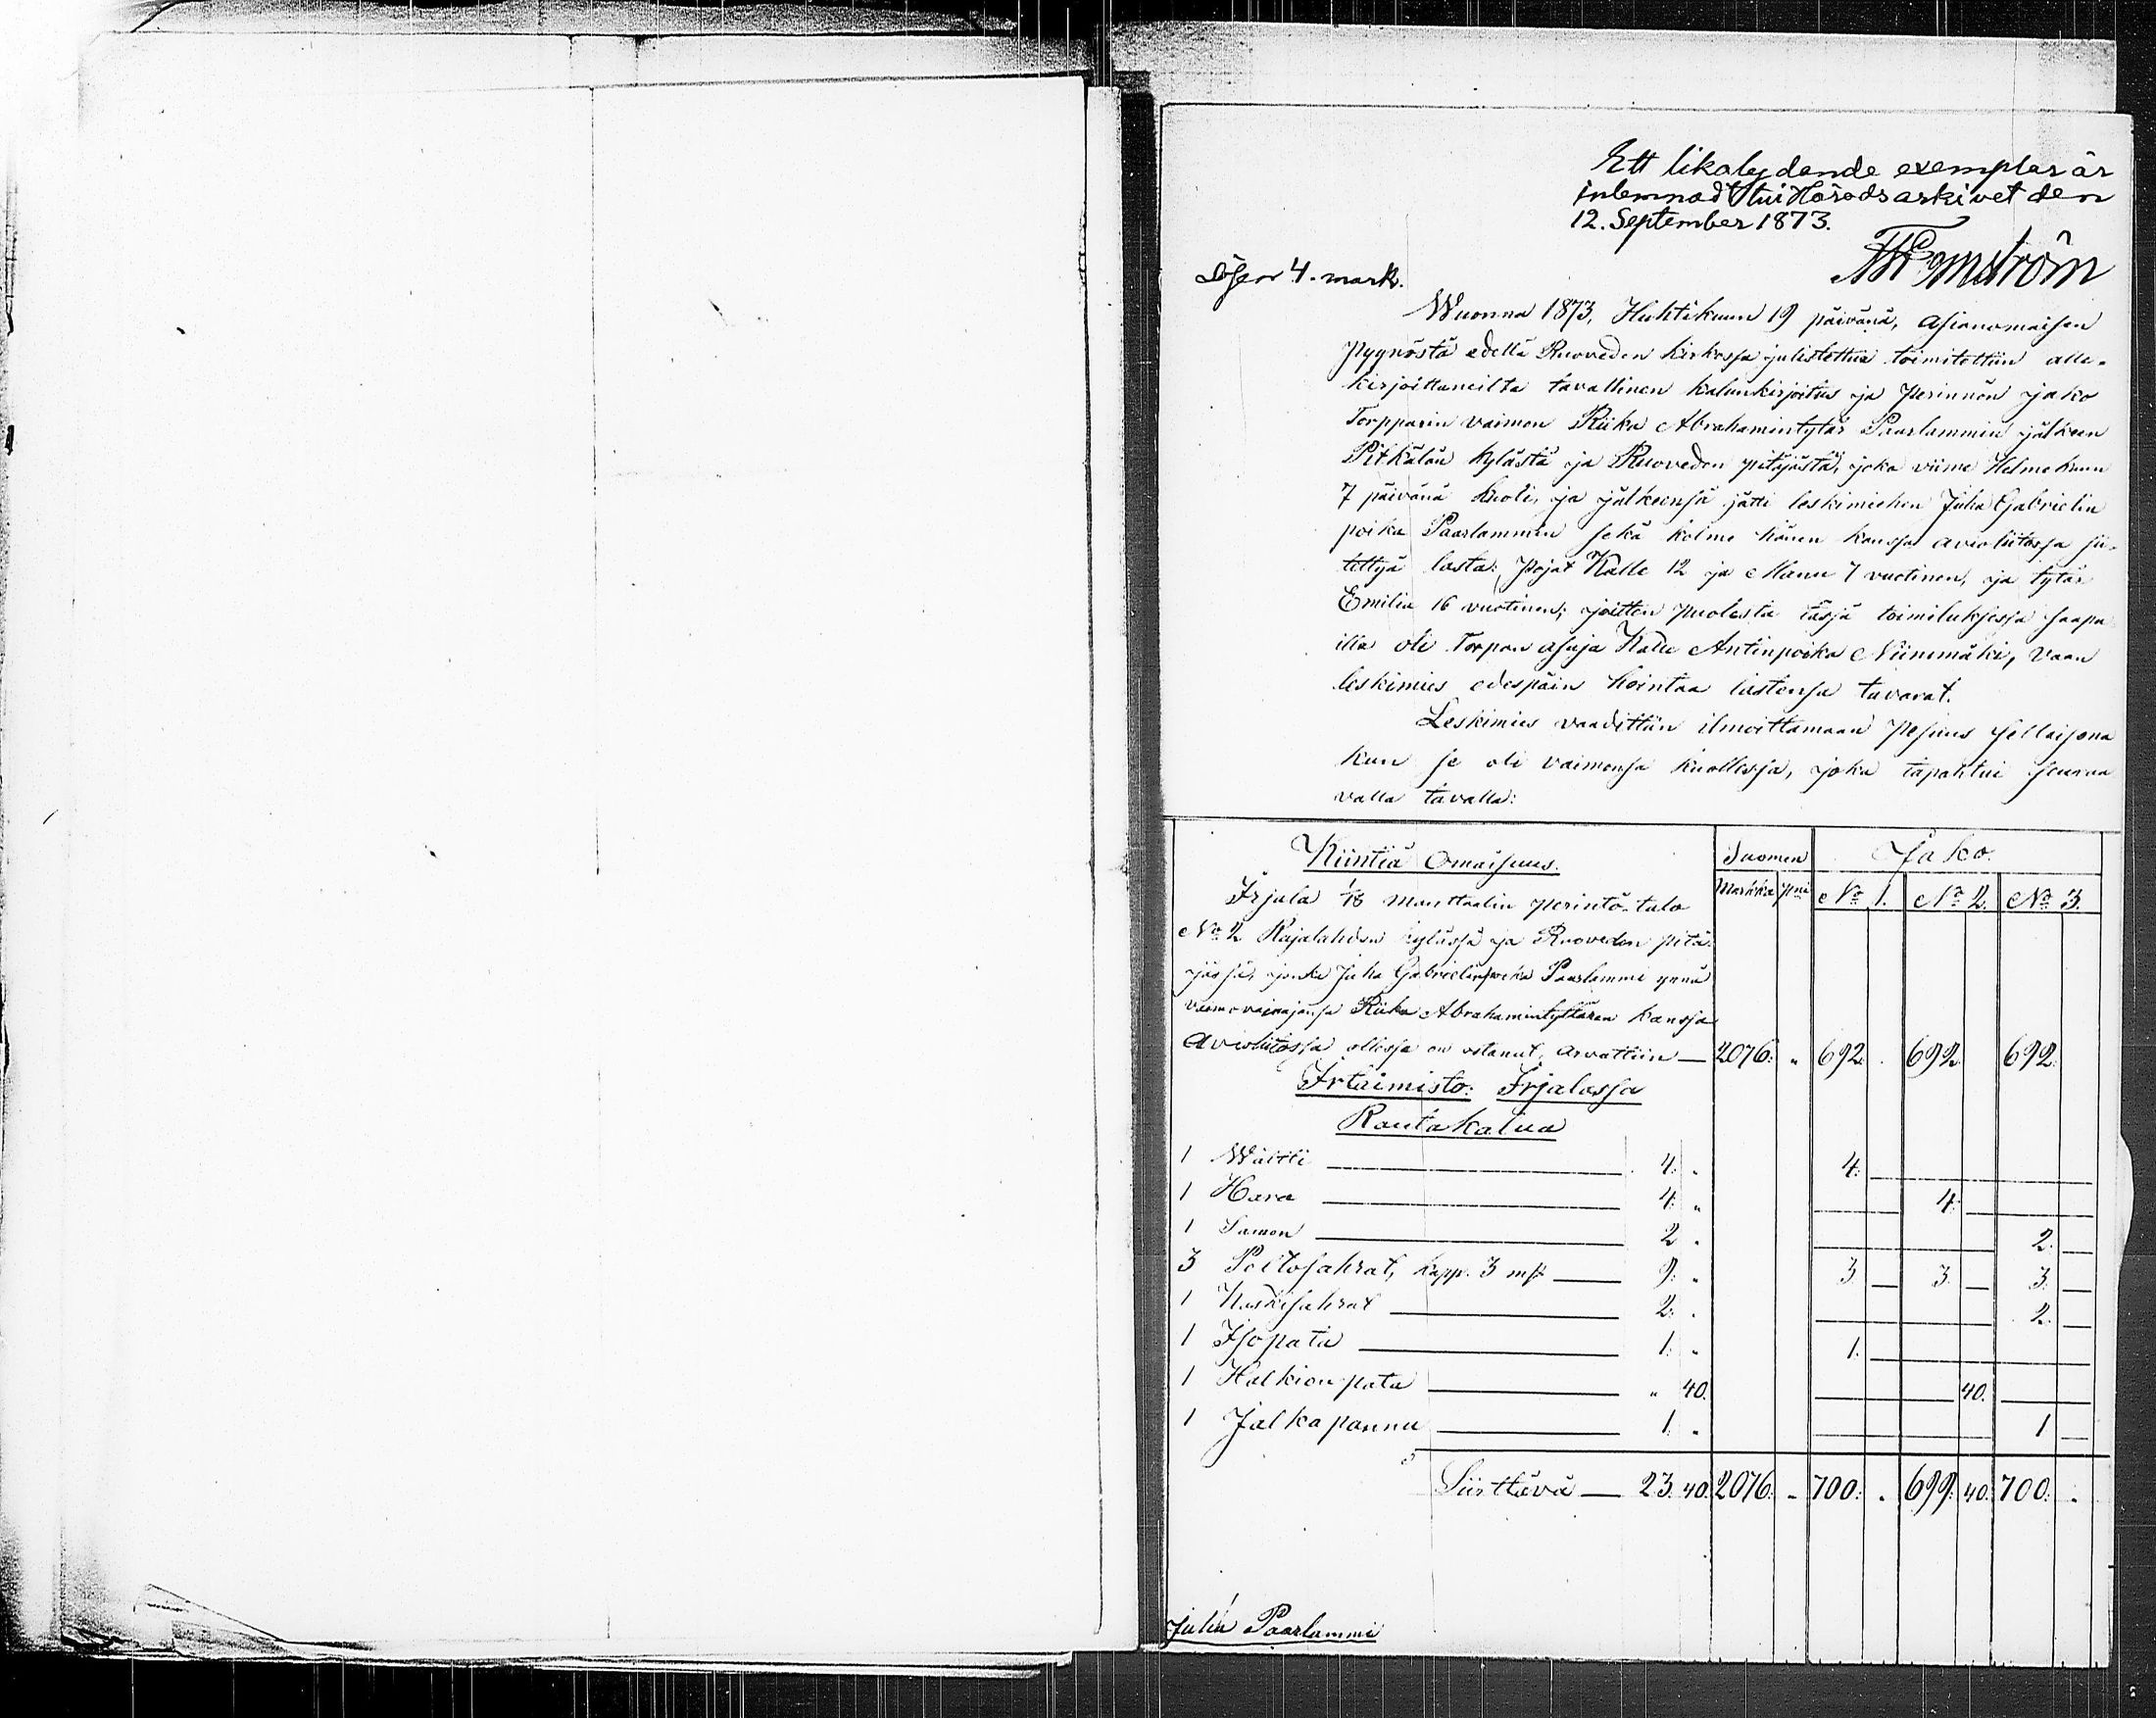 Ett likalydande exemplar är
inlemnadt till Häradsarkivet den
12. September 1873.
Lösen 4. mark.
Wuonna 1873, Huhtikuun 19 päivänä, asianomaisen
pyynöstä edellä Ruoveden kirkossa julistettua toimitettiin alle-
kirjoittaneilta tavallinen kalunkirjoitus ja perinnön jako
Torpparin vaimon Riika Abrahamintytär Paarlammin jälkeen
Pitkälän kylästä ja Ruoveden pitäjästä, joka viime Helmekuun
7 päivänä kuoli, ja jälkeensä jätti leskimiehen Juha Gabrielin
poika Paarlammin sekä kolme hänen kanssa avioliitossa sii-
tettyä lasta: pojat Kalle 12 ja Manu 7 vuotinen, ja tytär
Emilia 16 vuotinen; joitten puolesta tässä toimituksessa saapu
illa oli Torpan asuja Kalle Antinpoika Niinimäki, vaan
leskimies edespäin hointaa lastensa tavarat.
Leskimies vaadittiin ilmoittamaan pesäns sellaisena
kun se oli vaimonsa kuollessa, joka tapahtui seuraa
valla tavalla:
Kiintiä Omaisuus.
Suomen
Jako.
Markka pni
No 1. No 2. No 3.
Irjala 1/18 manttaalin perintö-talo
No 2 Rajalahden kylässä ja Ruoveden pitä-
jässä, jonka Juha Gabrielinpoika Paarlammi ynnä
vaimovainajansa Riika Abrahamintyttären kanssa
Aviolitossa ollessa on ostanut, arvattiin — 2076: „ 692: . 692 692
Irtaimisto: Irjalassa
Rautakalua
1 Wältti — 4: „ 4:
1 Hara — 4: „ 4:
1 — 2 „ 2:
3 Peltosahrat, kapp. 3 mk — 9: „ 3 — 3 — 3: —
1 Koskisahrat — 2: „ 2: —
1 Isopata — 1: „ 1:
1 Halkionpata — „ 40. 40.
1 Jalkapannu — 1: „ 1 —
Siirttävä — 23. 40. 2076: „ 700: „ 699: 40. 700: „
Juha Paarlammi